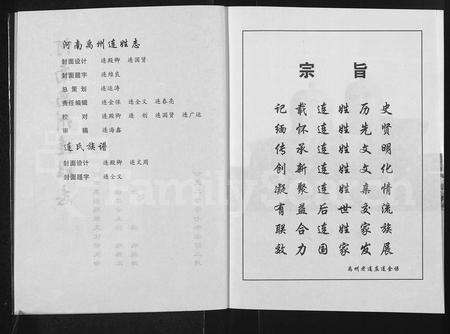 河南禹州连姓志
封面设计 连殿卿 连国贤
封面题字 连维良
总策划 连运涛
责任编辑 连金保 连全义 连春亮
校对 连殿卿 连创 连国贤 连广运
审稿 连海鑫
连氏族谱
封面设计 连殿卿 连文周
封面题字 连全义
宗旨
记载连姓历史
缅怀连姓先贤
传承连姓文明
创新连姓文化
凝聚连姓亲情
有益后世交流
联合连姓家族
致力国家发展
禹州老连庄连金保